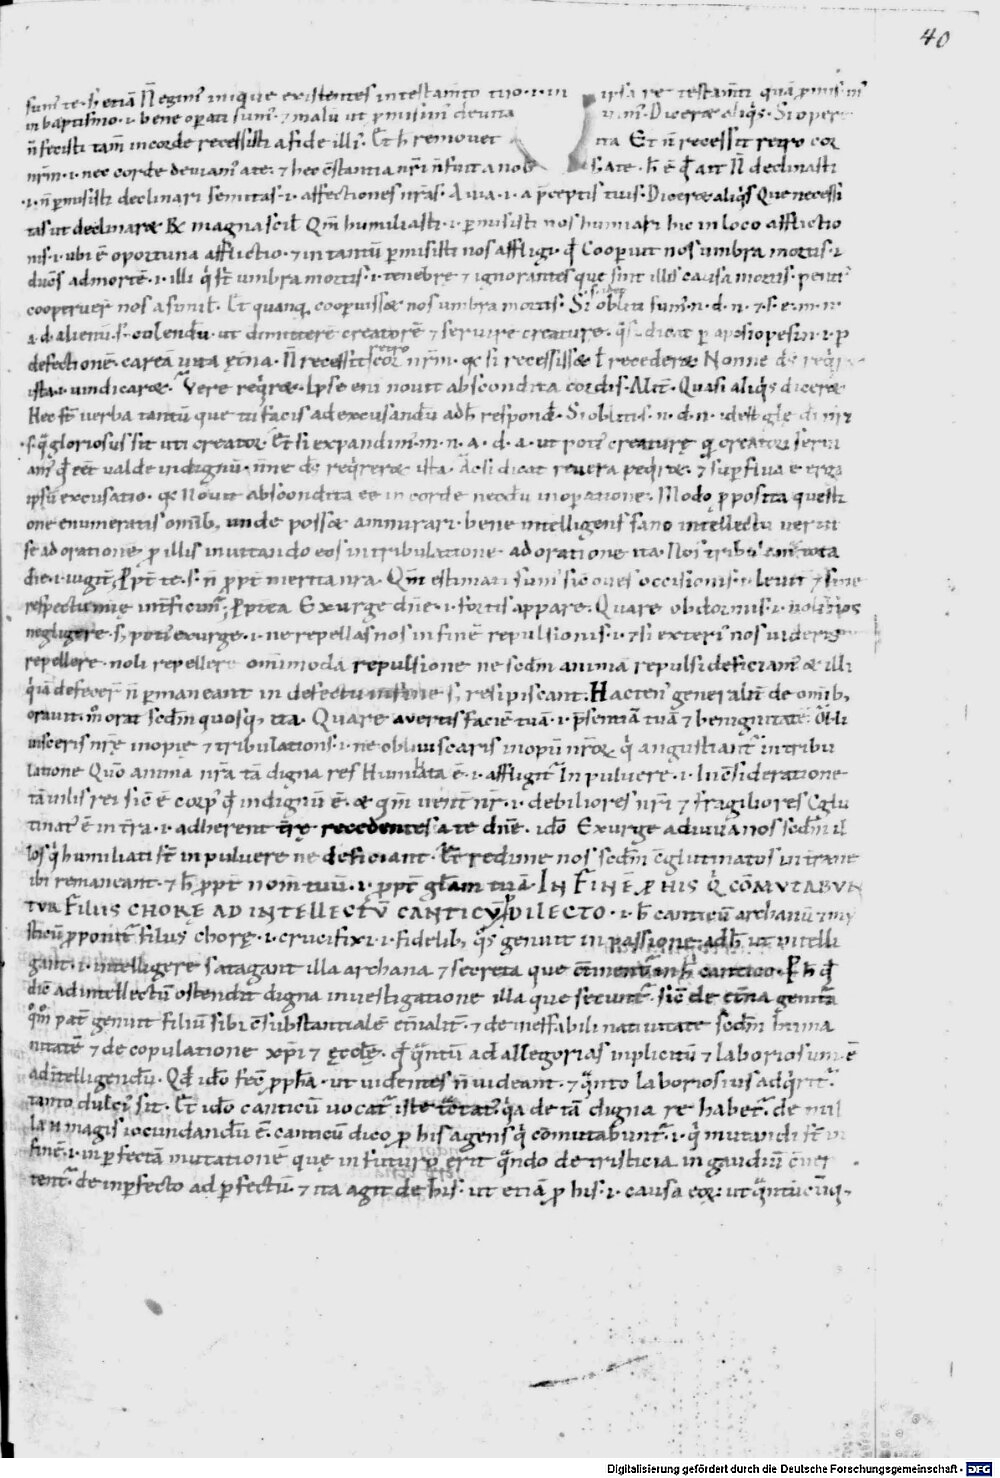 40
sumus te. s; etiā N̄ egimus inique existentes in testam̄to tuo .i. in
in baptismo .i. bene oꝑati sumus. ⁊ malū ut ꝓmisimus
n̄ fecisti tam̄ in corde recessisti a fide illius. Et h̄ removet ita Et n̄ recessit retro cor
nr̄m .i. nec corde deviamus a te: ⁊ hec c̄stantia nr̄i n̄ fuit a nob Et
.i. n̄ ꝑmisisti declinari semitas .i. affectiones nr̄as. A uia .i. a p̄ceptis tuis. Diceret aliqͥs Que necessi
tas ut declinaret Ex magna scil Qm̄ humiliasti .i. ꝑmisisti nos humiliari hic in loco afflictio
nis .i. ubi ē oportuna afflictio. ⁊ in tantū ꝑmisisti nos affligi. qđ Cooperuit nos umbra mortis .i.
ducens ad mortē .i. illi qͥ st̄ umbra mortis .i. tenebrę ⁊ ignorantes que sint illis causa mortis. penit
cooperuerunt nos a simil. Et quanqͣ cooperuisset nos umbra mortis. Si obliti sumus. n. d. n. ⁊. s. e. m. n.
a. d. alienū. s. colendū. ut dimittere creatorē ⁊ servire creature. qͣsi dicat ꝑ aposiopesin .i. ꝑ
defectionē. careā uita ęt̄na. N̄ recessit retro cor nr̄m. qͣ si recessisset ł recederet Nonne ds̄ reqͥr
ista .i. vindicaret. Vere reqͥret. Ipse eni novit abscondita cordis. Alit̄. Quasi aliqͥs diceret
Hec st̄ verba tantū que tu facis ad excusandū ad h̄ respondet. Si obliti. n. d. n. idest glę di nr̄i
s. qͣ gloriosus sit uti creator. Et si expandimus. m. n. a. d. a. ut pote creaturę qͣ creatori servi
amus qđ eēt valde indignū. n̄ne ds̄ reqͥreret ista. Ac si dicat revera reqͥret. ⁊ suꝑflua ē erga
ipsū excusatio. qͣ Novit abscondita eē in corde necdū in oꝑatione. Modo ꝓposita questi
one enumeratis omīb; unde posset ammirari. bene intelligens sano intellectu vertit
se ad orationē ꝓ illis invitando eos in tribulatione ad oratione ita. Nos tribulamur tota
die .i. iugit̄, ꝓpt̄ te. s. n̄ ꝓpt̄ merita nra. Qm̄ estimati sumus sic oues occisionis .i. levit ⁊ sine
respectu mię int̄ficimur, ꝓpt̄ea Exurge dn̄e .i. fortis appare. Quare obdormis .i. nos
negligere. s; potius exurge .i. ne repellas nos in finē repulsionis .i. ⁊ si exterius nos videris
repellere. noli repellere omnimoda repulsione ne scd̄m animā repulsi deficiamus et illi
qͥ iā defecerunt n̄ ꝑmaneant in defectu in fine s; resipiscant. Hactenus generalit̄ de omīb;
oravit. m̊ orat scd̄m quosqͣ; ita. Quare avertis faciē tuā .i. p̄sentiā tuā ⁊ benignitatē. Obli
visceris nr̄ę inopię ⁊ tribulationis .i. ne obliviscaris inopū nr̄oꝝ qͥ angustiantur in tribu
latione Qm̄ anima nr̄a tā digna res Humiliata ē .i. affligitur In pulvere .i. In c̄sideratione
tā vilis rei sic ē corpus qđ indignū ē. et qm̄ vent̄ nr̄ .i. debiliores nr̄i ⁊ fragiliores C̄glu
tinatus ē in tr̄a .i. adherent tr̄ę recedentes a te dn̄e. ido Exurge adiuva nos scd̄m il
los qͥ humiliati st̄ in pulvere ne deficiant. Et redime nos scd̄m c̄glutinatos in tra ne
ibi remaneant. ⁊ h̄ ꝓpt̄ nom̄ tuū .i. ꝓpt̄ glam tuā. IN FINĒ P HIS Qͥ CŌMVTABVN
TVR FILIIS CHORĘ AD INTELLECTŪ CANTICV̄ P DILECTO .i. h̄ canticū archanū ⁊ my
sticū ꝓponitur filiis chorę .i. crucifixi .i. fidelib; qͦs genuit in passione. ad h̄ ut intelli
gant .i. intelligere satagant illa archana ⁊ secreta que c̄tinentur in h̄ cantico. P h̄ qđ
dic̄ ad intellectū ostendit digna investigatione illa que secuntur. sic̄ de et̄na genitura
qͦm pat̄ genuit filiū sibi c̄substantialē et̄nalit̄. ⁊ de ineffabili nativitate scd̄m huma
nitatē ⁊ de copulatione xp̄i ⁊ ęccl̄ę. qđ qͣntū ad allegorias inplicitū ⁊ laboriosum ē
ad intelligendū. Qđ ido fec̄ ꝓpha. ut videntes n̄ videant. ⁊ qͣnto laboriosius adqͥritur.
tanto dulcius sit. Et ido canticū vocatur iste totatus qͥa de tā digna re habetur. de nul
la n̄ magis iocundandū ē. canticū dico ꝓ his agens qͥ cōmutabuntur .i. qͥ mutandi st̄ in
finē .i. in ꝑfectam mutationē quę in futuro erit qͣndo de tristicia in gaudiū c̄ver
tentur. de inꝑfecto ad ꝑfectū. ⁊ ita agit de his. ut etiā ꝓ his .i. causa eoꝝ: ut qͣntūcūqͣ;
Digitalisierung gefördert durch die Deutsche Forschungsgemeinschaft - DFG